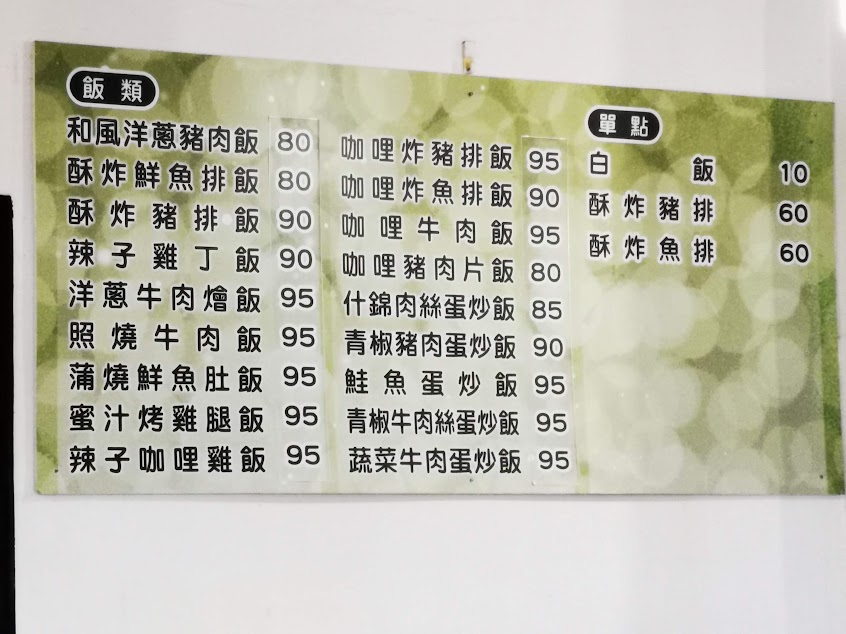 飯類
和風洋蔥豬肉飯 80
酥炸鮮魚排飯 80
酥炸豬排飯 90
辣子雞丁飯 90
洋蔥牛肉燴飯 95
照燒牛肉飯 95
蒲燒鮮魚肚飯 95
蜜汁烤雞腿飯 95
辣子咖哩雞飯 95
咖哩炸豬排飯 95
咖哩炸魚排飯 90
咖哩牛肉飯 95
咖哩豬肉片飯 80
什錦肉絲蛋炒飯 85
青椒豬肉蛋炒飯 90
鮭魚蛋炒飯 95
青椒牛肉絲蛋炒飯 95
蔬菜牛肉蛋炒飯 95
單點
白飯 10
酥炸豬排 60
酥炸魚排 60